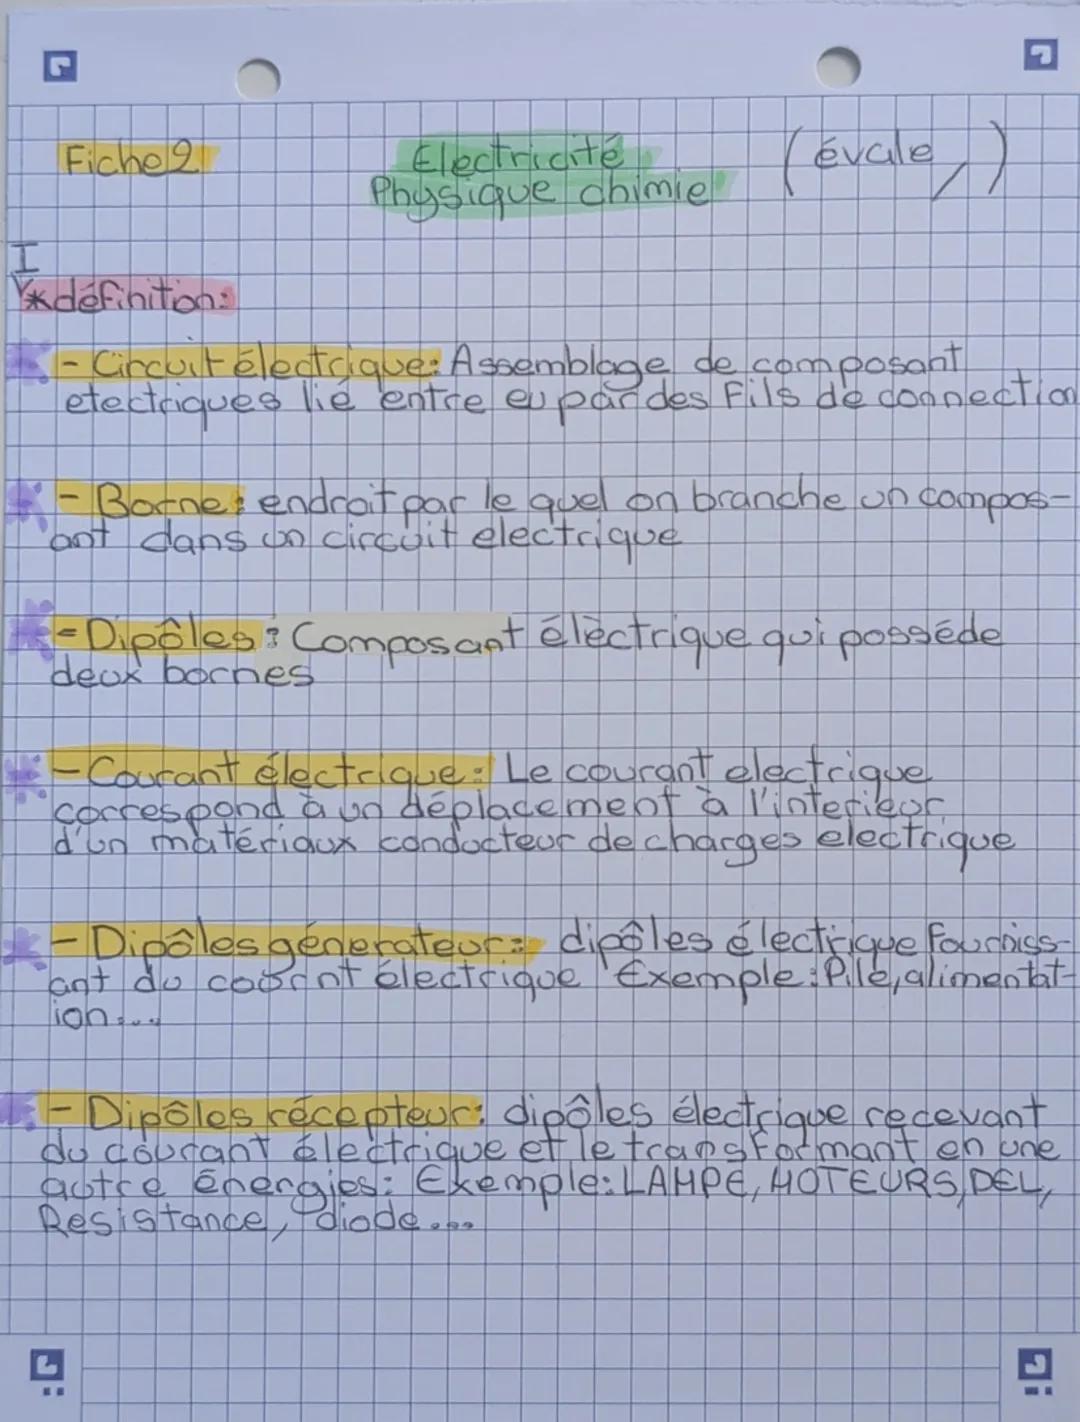 Fiche 2
Electricité
Physique chimie
(évale, )
I
*définition:
- Circuit électrique: Assemblage de composant
electriques lié entre eu par des Fils de connection
- Borne: endroit par le quel on branche un compos-
ant dans un circuit electrique
- Dipôles: Composant électrique qui posséde
deux bornes
- Courant électrique: Le courant electrique
correspond à un déplacement à l'interieur
d'un matériaux conducteur de charges electrique
- Dipôles génerateur: dipôles électrique Fourniss-
ant du courant électrique Exemple: Pile, alimentat-
ion....
- Dipôles récepteur: dipôles électrique recevant
du courant électrique et le transformant en une
autre énergies: Exemple: LAMPE, MOTEURS, DEL,
Resistance, diode....